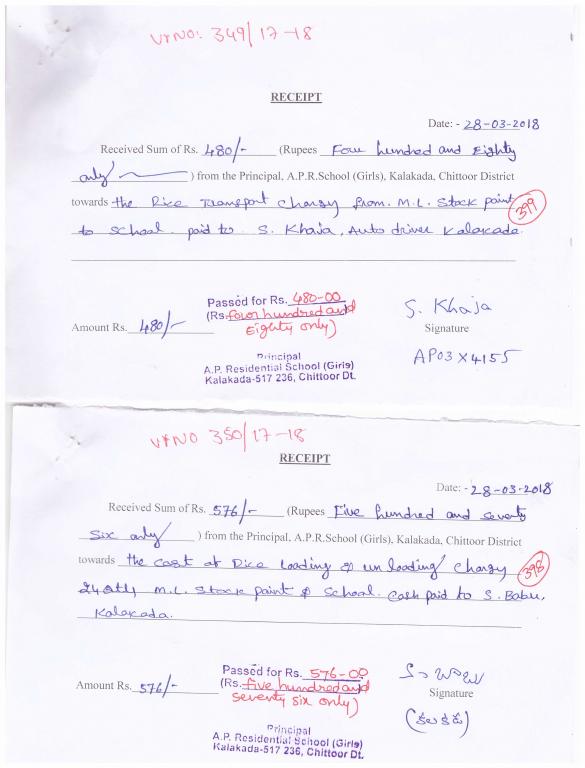 VrNO: 349/17-18
RECEIPT
Date: - 28-03-2018
Received Sum of Rs. 480/- (Rupees Four hundred and Eighty
only/ ) from the Principal, A.P.R.School (Girls), Kalakada, Chittoor District
towards the Rice Transport Chargy from. M.L. Stock point
399
to School. paid to S. Khaja, Auto driver Kalakada.
Passed for Rs. 480-00
(Rs. four hundred and
Eighty only)
Amount Rs. 480/-
S. Khaja
Signature
AP03X4155
Principal
A.P. Residential School (Girls)
Kalakada-517 236, Chittoor Dt.
VrNO 350/17-18
RECEIPT
Date: - 28-03-2018
Received Sum of Rs. 576/- (Rupees Five hundred and Seventy
Six only/ ) from the Principal, A.P.R.School (Girls), Kalakada, Chittoor District
towards the cost of Rice Loading & un loading Chargy
398
M.L. Stock point & School. Cash paid to S. Babu,
Kalakada.
Passed for Rs. 576-00
(Rs. five hundred and
seventy six only)
Amount Rs. 576/-
Signature
Principal
A.P. Residential School (Girls)
Kalakada-517 236, Chittoor Dt.